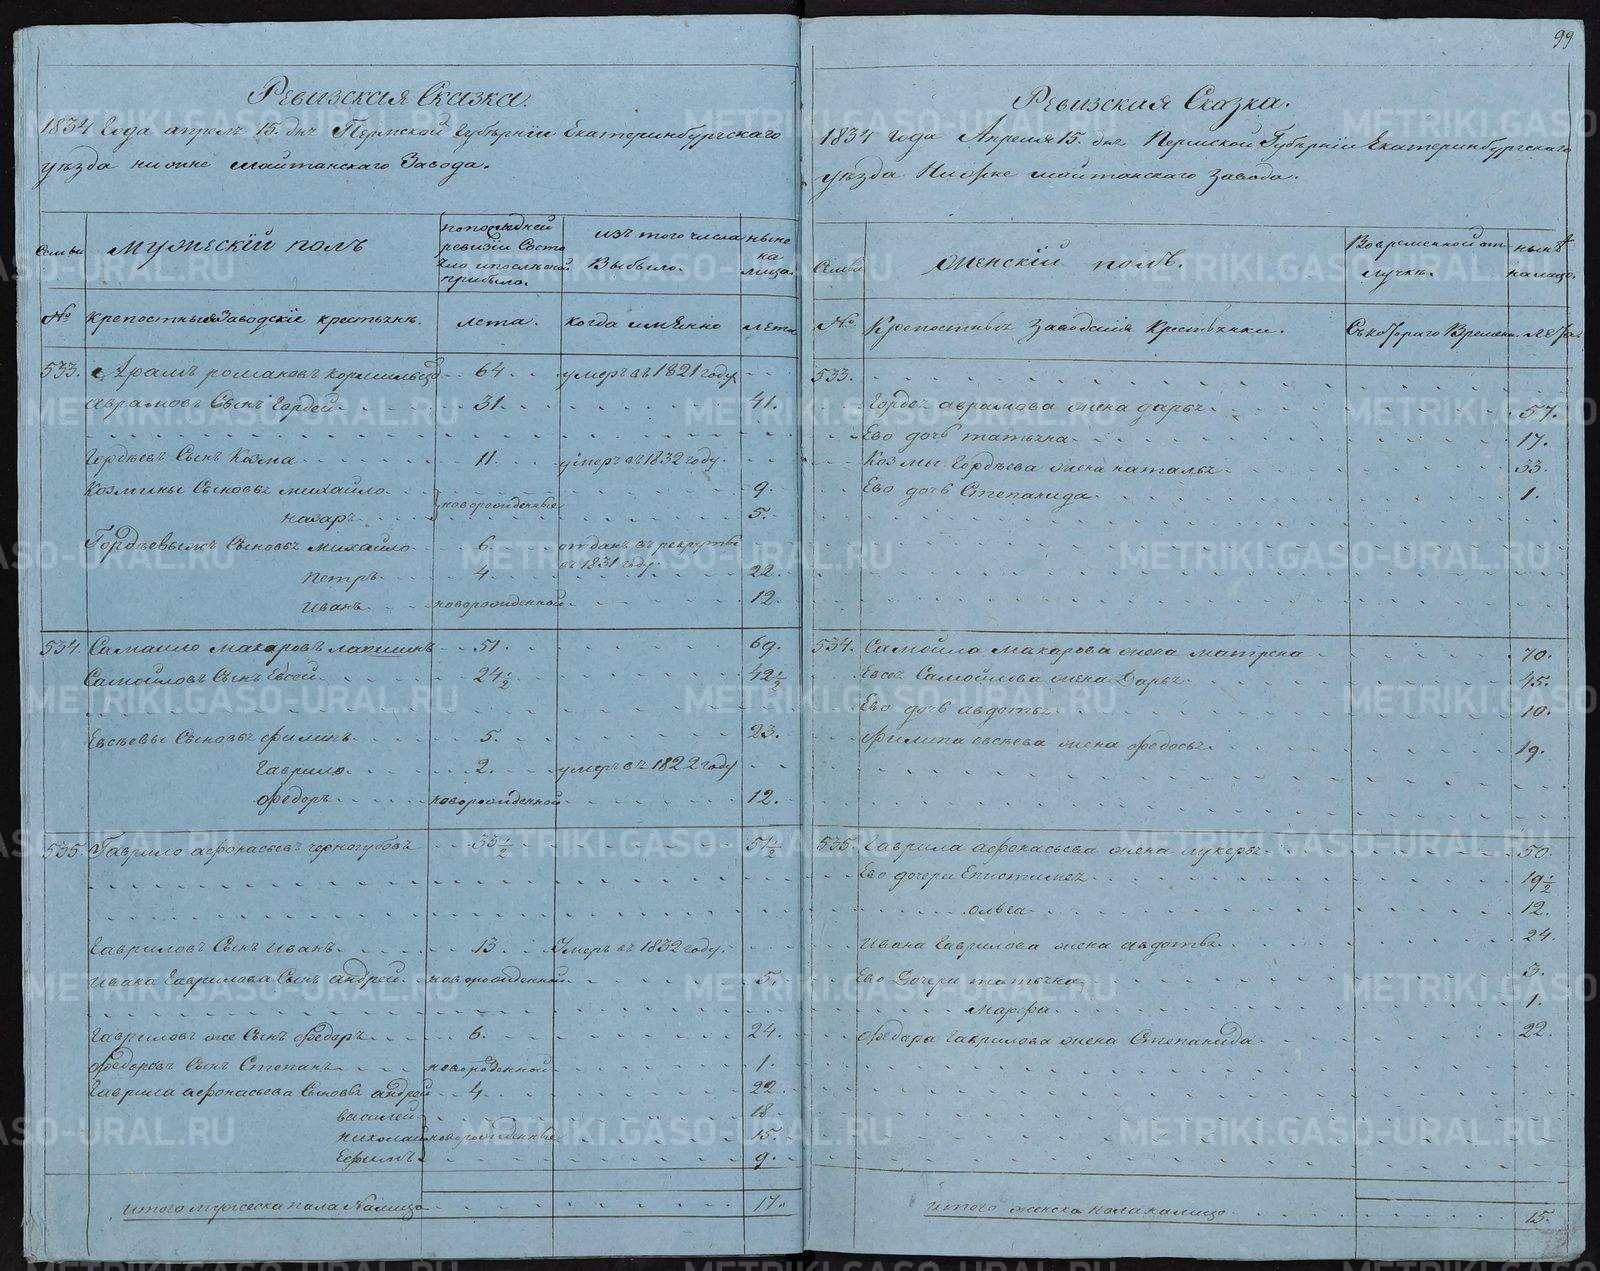 99
Ревизская Сказка.
1834 Года апреля 15. дня Пермской Губернiи Екатеринбургскаго
уезда нижне шайтанскаго Завода.
Семьи
Мужескiй полъ
по последней ревизiи Состояло и после оной прибыло.
изъ того числа Выбыло.
ныне на лицо.
№
крепостныя Заводскiе крестьяне.
лета.
когда имянно
лета
533. Абрамъ романовъ Кормильцовъ 64 умеръ въ 1821 году
Аврамовъ Сынъ Гордей 31. 41.
Гордеевъ Сынъ Козма 11. умеръ въ 1832 году.
Козмины Сыновья михайло 9.
новорожденные
назаръ 5.
Гордеевыжъ Сыновья михайло 6. отданъ въ рекруты въ 1831 году.
петръ 4. 22.
иванъ новорожденной. 12.
534. Самаило макаровъ лапшинъ 51. 69.
Самойловъ Сынъ Евсей 24½ 42½
Евсеевы Сыновья филипъ 5. 23.
Гаврило 2. умеръ въ 1822 году
федоръ новорожденной 12.
535 Гаврило афонасьевъ черногубовъ 33½ 51½
Гавриловъ Сынъ иванъ 13. Умеръ въ 1832 году.
ивана Гаврилова Сынъ андрей новорожденной 5.
Гавриловъ же Сынъ федоръ 6. 24.
федоровъ Сынъ Степанъ новорожденной 1.
Гаврила афонасьева Сыновья андрей 4. 22.
василей 18
николай новорожденные 15.
Ефимъ 9.
итого мужеска пола налицо 17.
Ревизская Сказка.
1834 года Апреля 15. дня Пермской Губернiи Екатеринбургскаго
уезда Нижне шайтанскаго завода.
Семьи
Женскiй полъ.
Во временной отлучке.
ныне налицо.
№
Крепостныя Заводскiя Крестьянки.
Съ котораго Времени.
лета
533.
Гордея аврамова жена дарья 57.
Ево дочь татьяна 17.
Козмы Гордеева жена наталья 33.
Ево дочь Степанида 1.
534. Самойла макарова жена матрена 70.
Евсея Самойлова жена Дарья 45.
Ево дочь авдотья 10.
Филипа евсеева жена федосья 19.
535 Гаврила афонасьева жена лукерья 50.
Ево дочери Епистимея 19½
ольга 12.
ивана Гаврилова жена авдотья 24.
Ево Дочери татьяна 3.
марфа 1.
Федора Гаврилова жена Степанида 22.
итого женска пола налицо 15.
METRIKI.GASO-URAL.RU